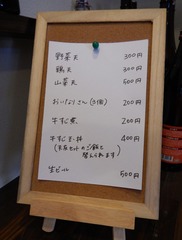 野菜天 300円
鶏天 300円
山菜天 500円
おいなりさん(3個) 200円
牛すじ煮 200円
牛すじ丼 400円
(天丼セットのご飯と
替えられます)
生ビール 500円